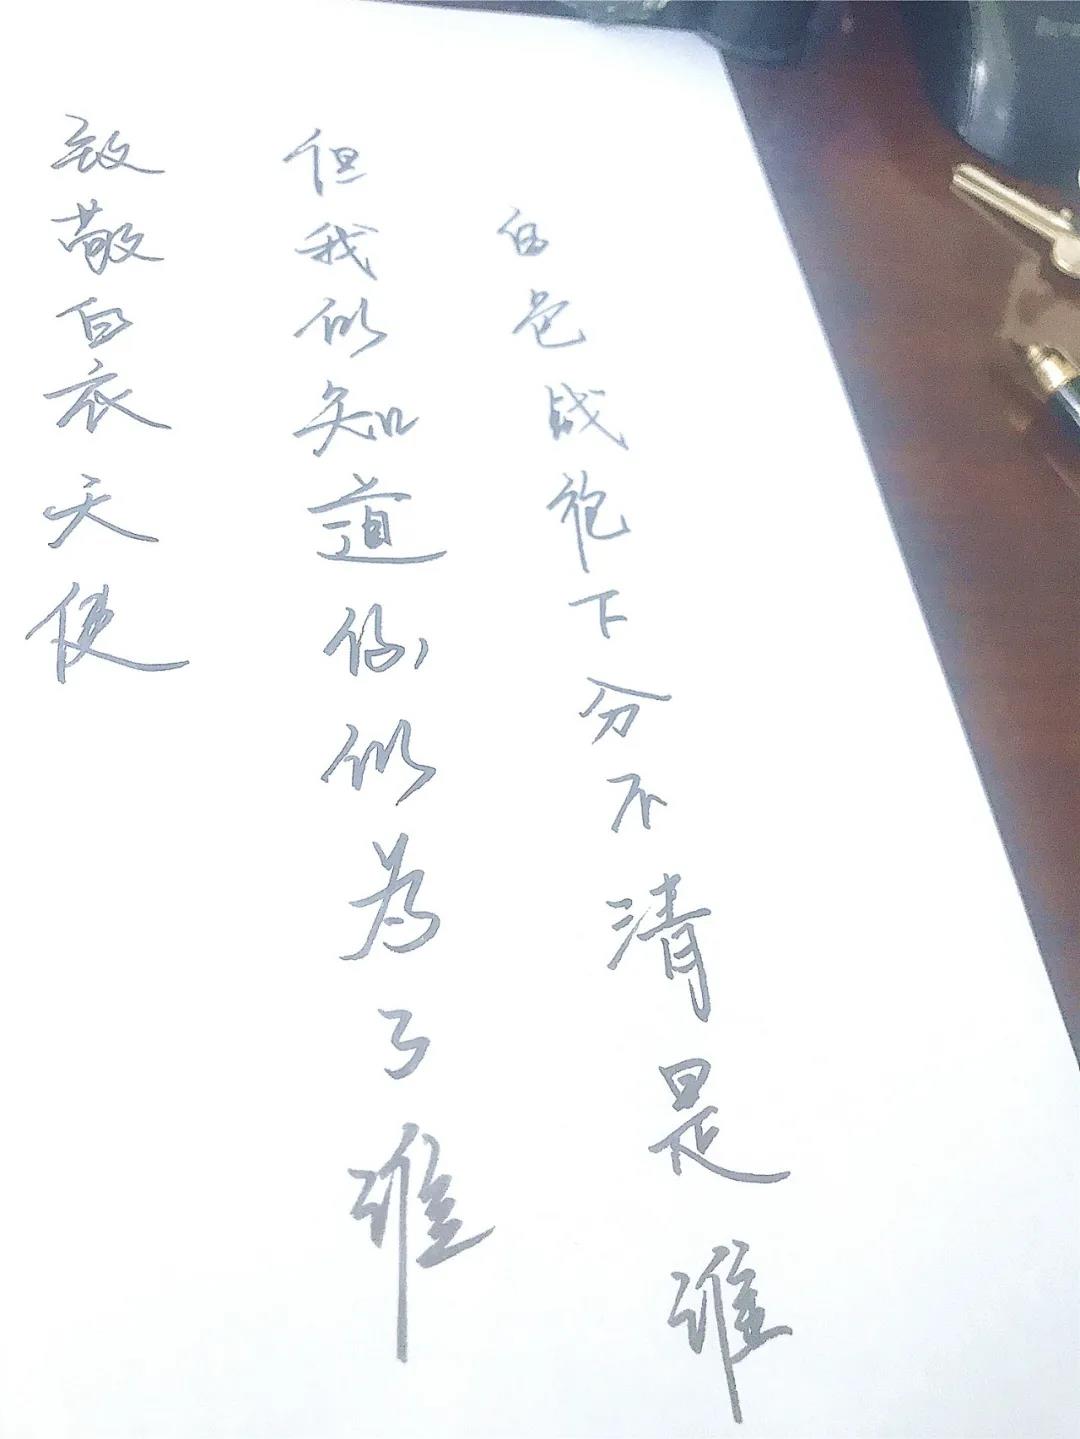 白色战袍下分不清是谁
但我们知道你们为了谁
致敬白衣天使